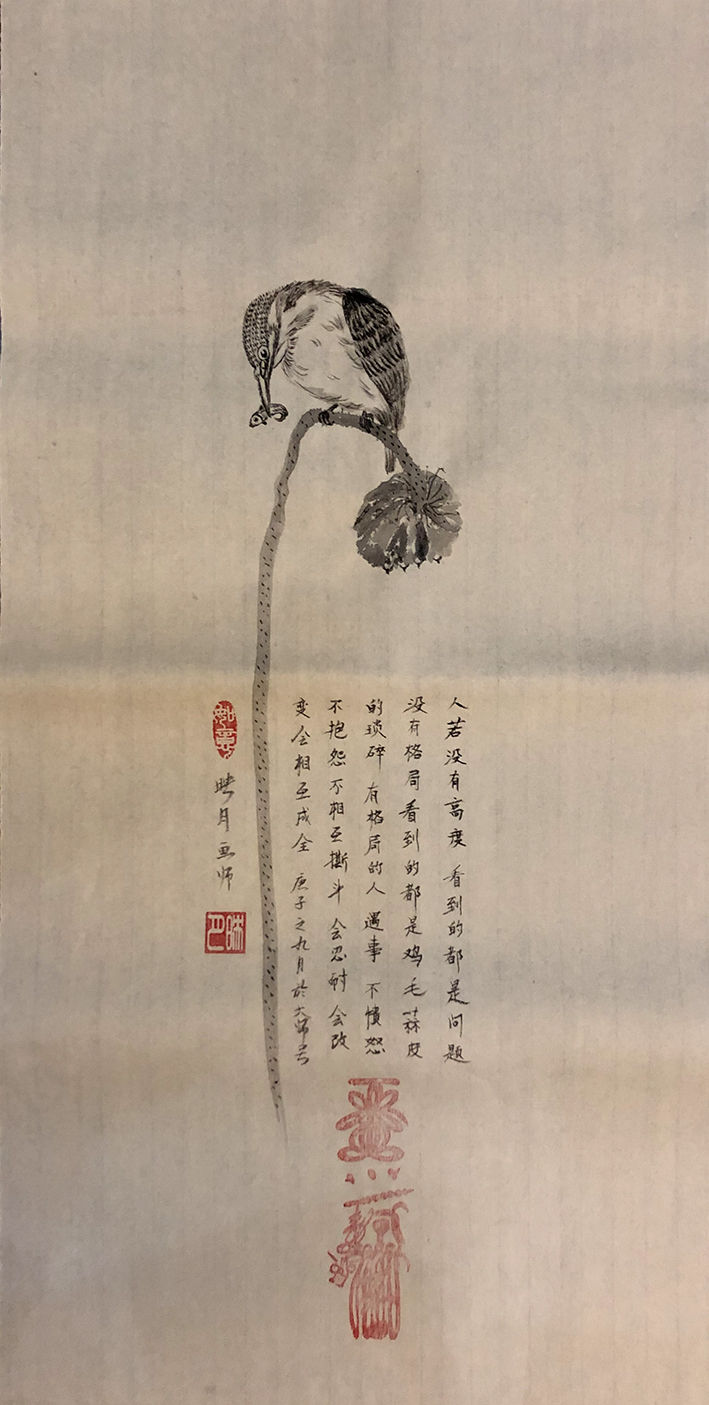 人若没有高度 看到的都是问题
没有格局看到的都是鸡毛蒜皮
的琐碎 有格局的人 遇事 不愤怒
不抱怨 不相互撕斗 会忍耐 会改
变 会相互成全 庚子之九月於
映月画师